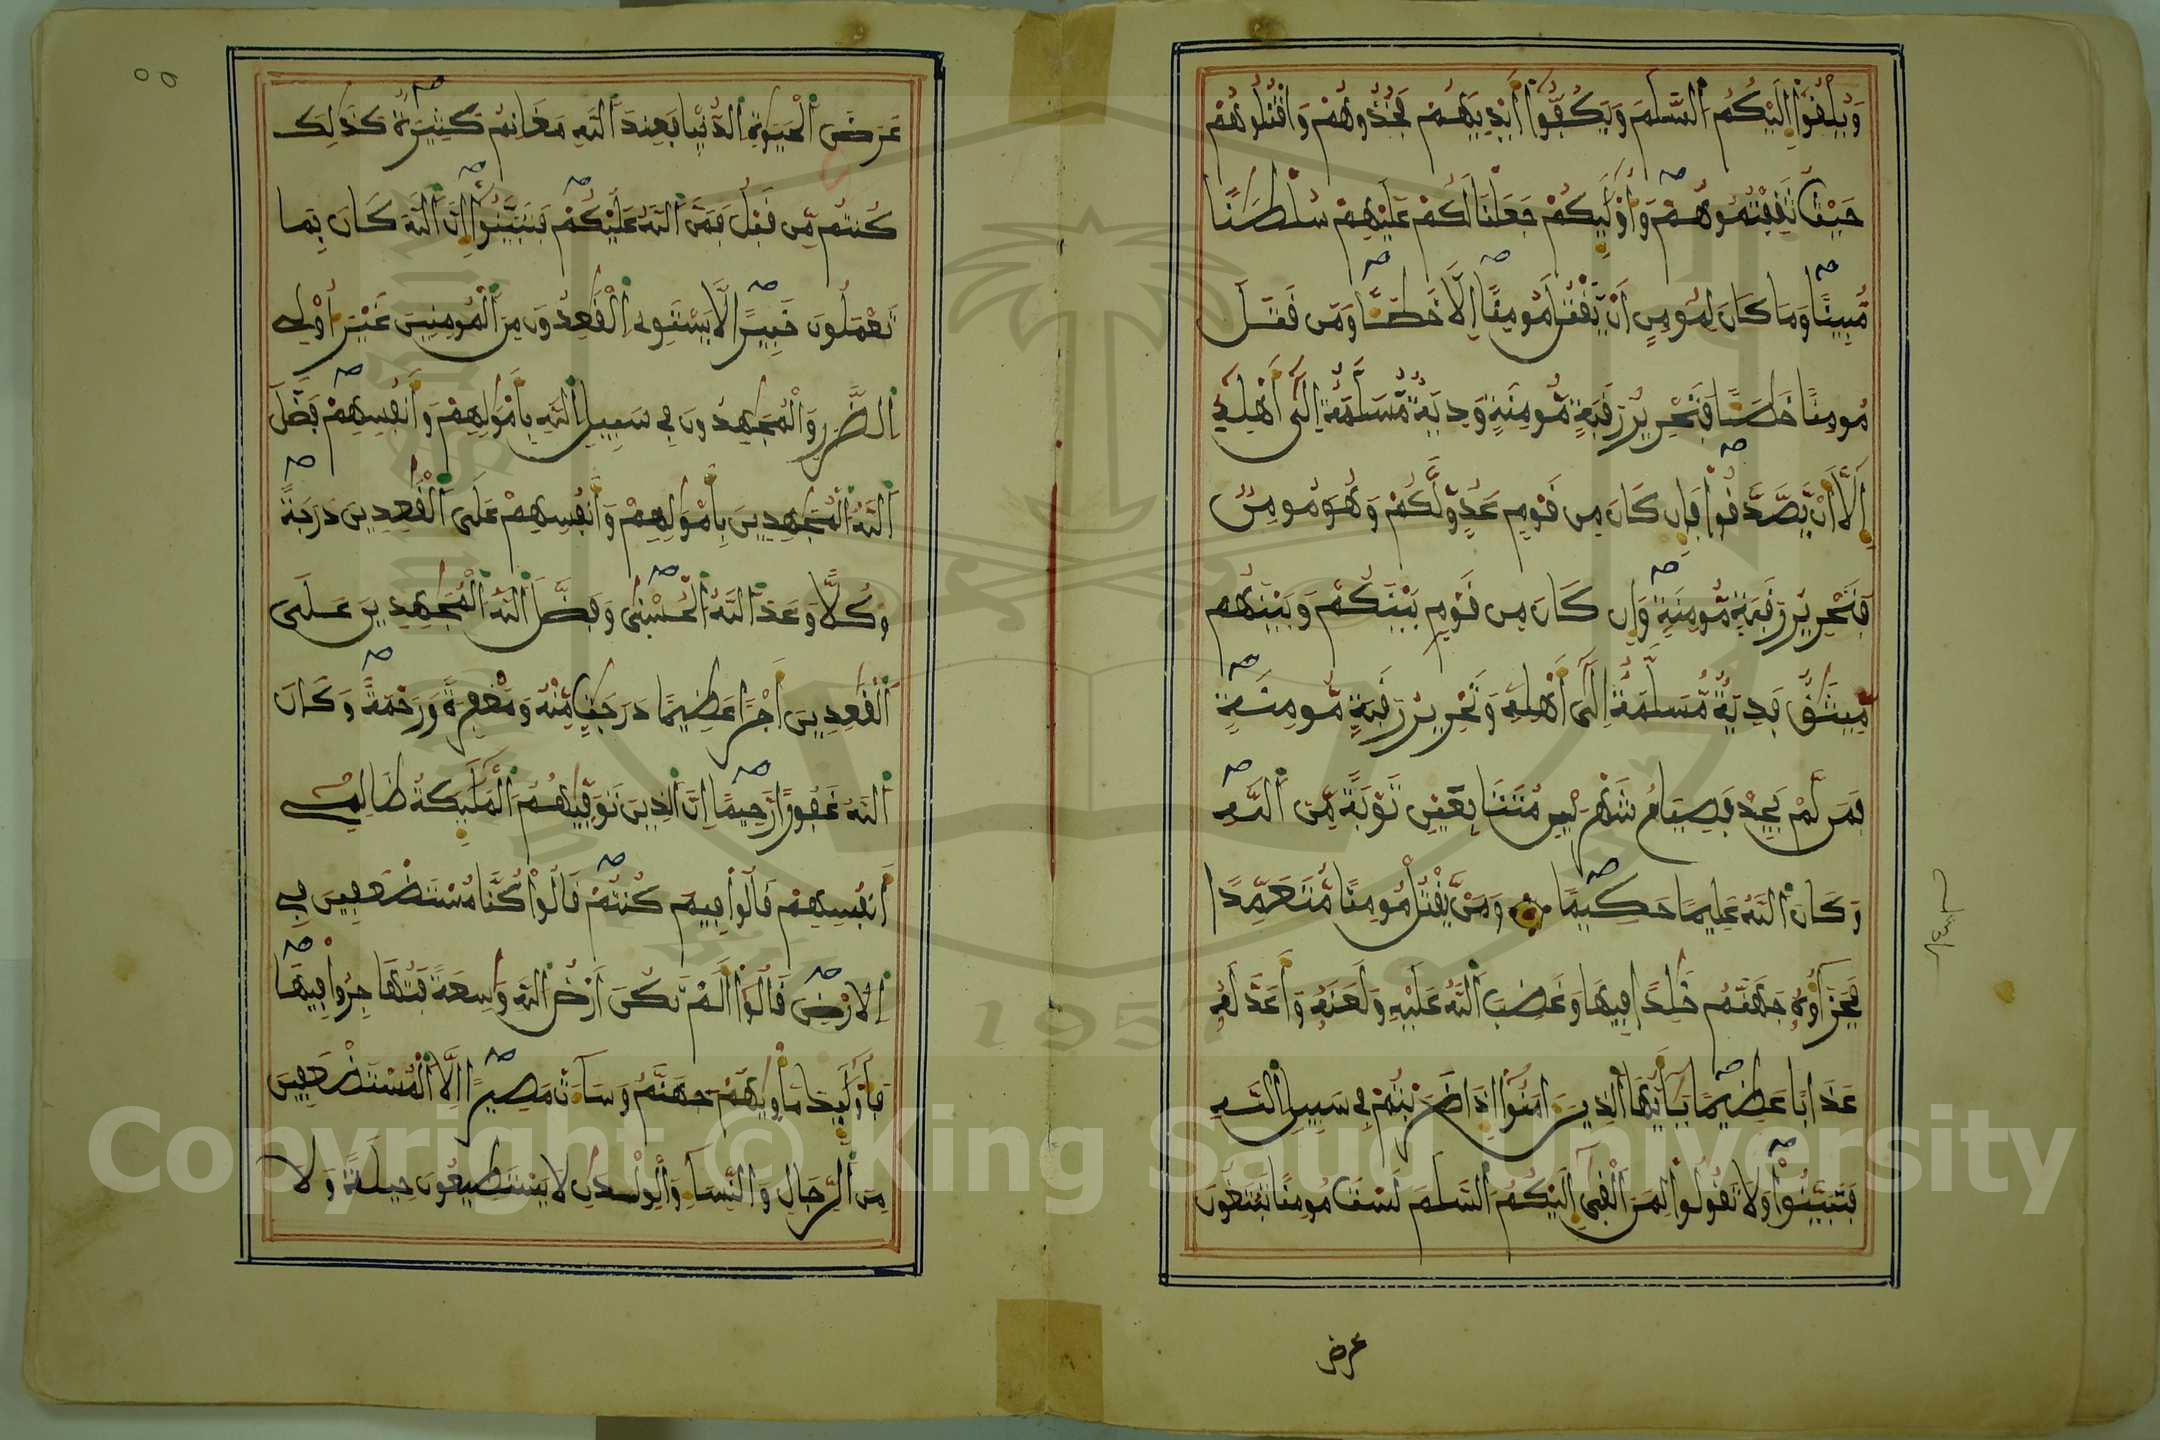 وَيُلْقُوٓا۟ إِلَيْكُمُ ٱلسَّلَمَ وَيَكُفُّوٓا۟ أَيْدِيَهُمْ فَخُذُوهُمْ وَٱقْتُلُوهُمْ
حَيْثُ ثَقِفْتُمُوهُمْ وَأُو۟لَٰٓئِكُمْ جَعَلْنَا لَكُمْ عَلَيْهِمْ سُلْطَٰنًا
مُّبِينًا وَمَا كَانَ لِمُومِنٍ أَنْ يَّقْتُلَ مُومِنًا إِلَّا خَطَـًٔا وَمَن قَتَلَ
مُومِنًا خَطَـًٔا فَتَحْرِيرُ رَقَبَةٍ مُّومِنَةٍ وَدِيَةٌ مُّسَلَّمَةٌ إِلَىٰٓ أَهْلِهِ
إِلَّآ أَنْ يَّصَّدَّقُوا۟ فَإِن كَانَ مِن قَوْمٍ عَدُوٍّ لَّكُمْ وَهُوَ مُومِنٌ
فَتَحْرِيرُ رَقَبَةٍ مُّومِنَةٍ وَإِن كَانَ مِن قَوْمٍ بَيْنَكُمْ وَبَيْنَهُم
مِّيثَٰقٌ فَدِيَةٌ مُّسَلَّمَةٌ إِلَىٰٓ أَهْلِهِ وَتَحْرِيرُ رَقَبَةٍ مُّومِنَةٍ
فَمَن لَّمْ يَجِدْ فَصِيَامُ شَهْرَيْنِ مُتَتَابِعَيْنِ تَوْبَةً مِّنَ ٱللَّهِ
وَكَانَ ٱللَّهُ عَلِيمًا حَكِيمًا وَمَنْ يَّقْتُلْ مُومِنًا مُّتَعَمِّدًا
فَجَزَآؤُهُ جَهَنَّمُ خَٰلِدًا فِيهَا وَغَضِبَ ٱللَّهُ عَلَيْهِ وَلَعَنَهُ وَأَعَدَّ لَهُ
عَذَابًا عَظِيمًا يَٰٓأَيُّهَا ٱلَّذِينَ ءَامَنُوٓا۟ إِذَا ضَرَبْتُمْ فِي سَبِيلِ ٱللَّهِ
فَتَبَيَّنُوا۟ وَلَا تَقُولُوا۟ لِمَنْ أَلْقَىٰٓ إِلَيْكُمُ ٱلسَّلَمَ لَسْتَ مُومِنًا تَبْتَغُونَ
عرض
عَرَضَ ٱلْحَيَوٰةِ ٱلدُّنْيَا فَعِندَ ٱللَّهِ مَغَانِمُ كَثِيرَةٌ كَذَٰلِكَ
كُنتُم مِّن قَبْلُ فَمَنَّ ٱللَّهُ عَلَيْكُمْ فَتَبَيَّنُوٓا۟ إِنَّ ٱللَّهَ كَانَ بِمَا
تَعْمَلُونَ خَبِيرًا لَّا يَسْتَوِي ٱلْقَٰعِدُونَ مِنَ ٱلْمُومِنِينَ غَيْرَ أُو۟لِي
ٱلضَّرَرِ وَٱلْمُجَٰهِدُونَ فِي سَبِيلِ ٱللَّهِ بِأَمْوَٰلِهِمْ وَأَنفُسِهِمْ فَضَّلَ
ٱللَّهُ ٱلْمُجَٰهِدِينَ بِأَمْوَٰلِهِمْ وَأَنفُسِهِمْ عَلَى ٱلْقَٰعِدِينَ دَرَجَةً
وَكُلًّا وَعَدَ ٱللَّهُ ٱلْحُسْنَىٰ وَفَضَّلَ ٱللَّهُ ٱلْمُجَٰهِدِينَ عَلَى
ٱلْقَٰعِدِينَ أَجْرًا عَظِيمًا دَرَجَٰتٍ مِّنْهُ وَمَغْفِرَةً وَرَحْمَةً وَكَانَ
ٱللَّهُ غَفُورًا رَّحِيمًا إِنَّ ٱلَّذِينَ تَوَفَّيٰهُمُ ٱلْمَلَٰٓئِكَةُ ظَالِمِي
أَنفُسِهِمْ قَالُوا۟ فِيمَ كُنتُمْ قَالُوا۟ كُنَّا مُسْتَضْعَفِينَ فِي
ٱلَارْضِ قَالُوٓا۟ أَلَمْ تَكُنَ أَرْضُ ٱللَّهِ وَٰسِعَةً فَتُهَاجِرُوا۟ فِيهَا
فَأُو۟لَٰٓئِكَ مَأْوِيٰهُمْ جَهَنَّمُ وَسَآءَتْ مَصِيرًا إِلَّا ٱلْمُسْتَضْعَفِينَ
مِنَ ٱلرِّجَالِ وَٱلنِّسَآءِ وَٱلْوِلْدَٰنِ لَا يَسْتَطِيعُونَ حِيلَةً وَلَا
Copyright © King Saud University
1957